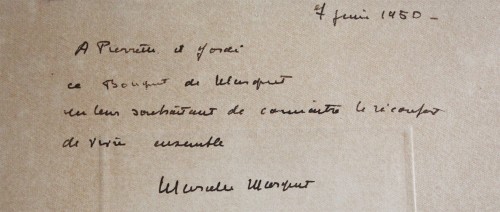 7 juin 1950 –
A Pierrette et Jordi
ce Bouquet de Marquet
en leur souhaitant de connaître le réconfort
de vivre ensemble
Marcelle Marquet